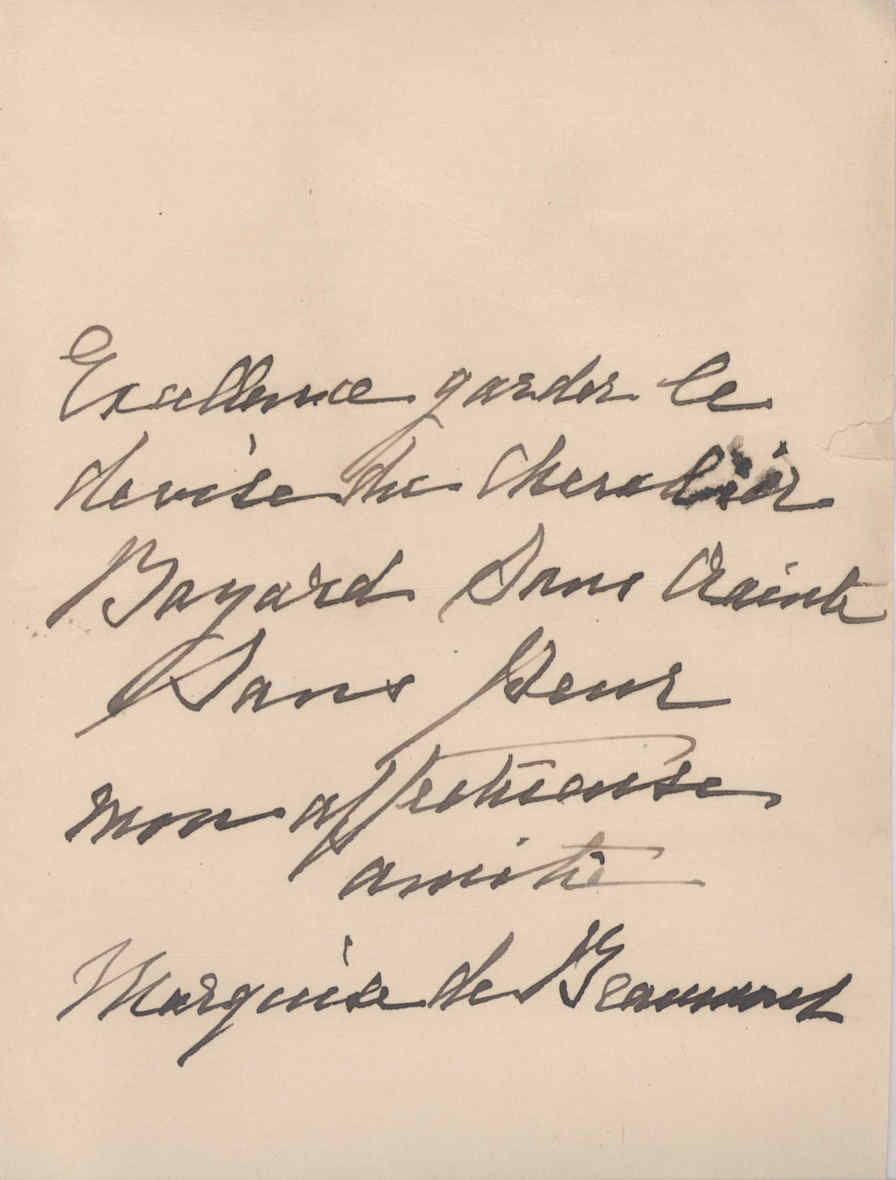 Excellence garder le
devise du Chevalier
Bayard Sans Crainte
Sans Peur
mon affectueuse
amitié
Marquise de